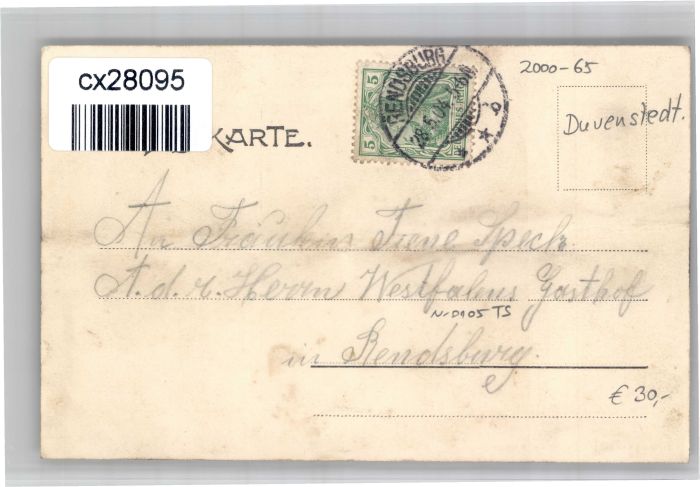 cx28095
KARTE.
5 5
RENDSBURG
28.5.04
2000-65
Duvenstedt.
An Fräulein Irene Speck
A. d. r. Herrn Westfalens Gasthof
N-D105 TS
in Rendsburg.
€ 30,-